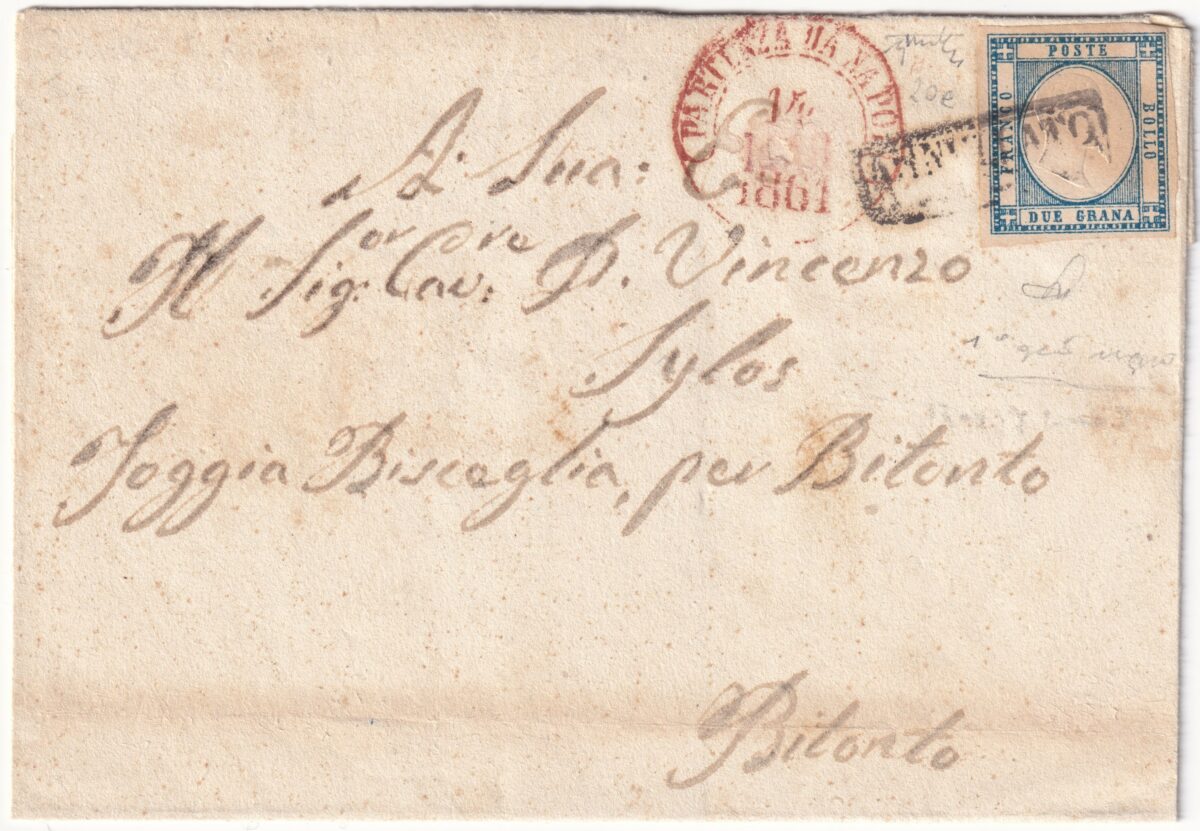 PARTENZA DA NAPOLI
1861
POSTE
FRANCO
BOLLO
DUE GRANA
ANNULLATO
20e
A. Sua: E.
Il Sig.or Cav.re D. Vincenzo
Sylos
Foggia Bisceglia, per Bitonto
Bitonto